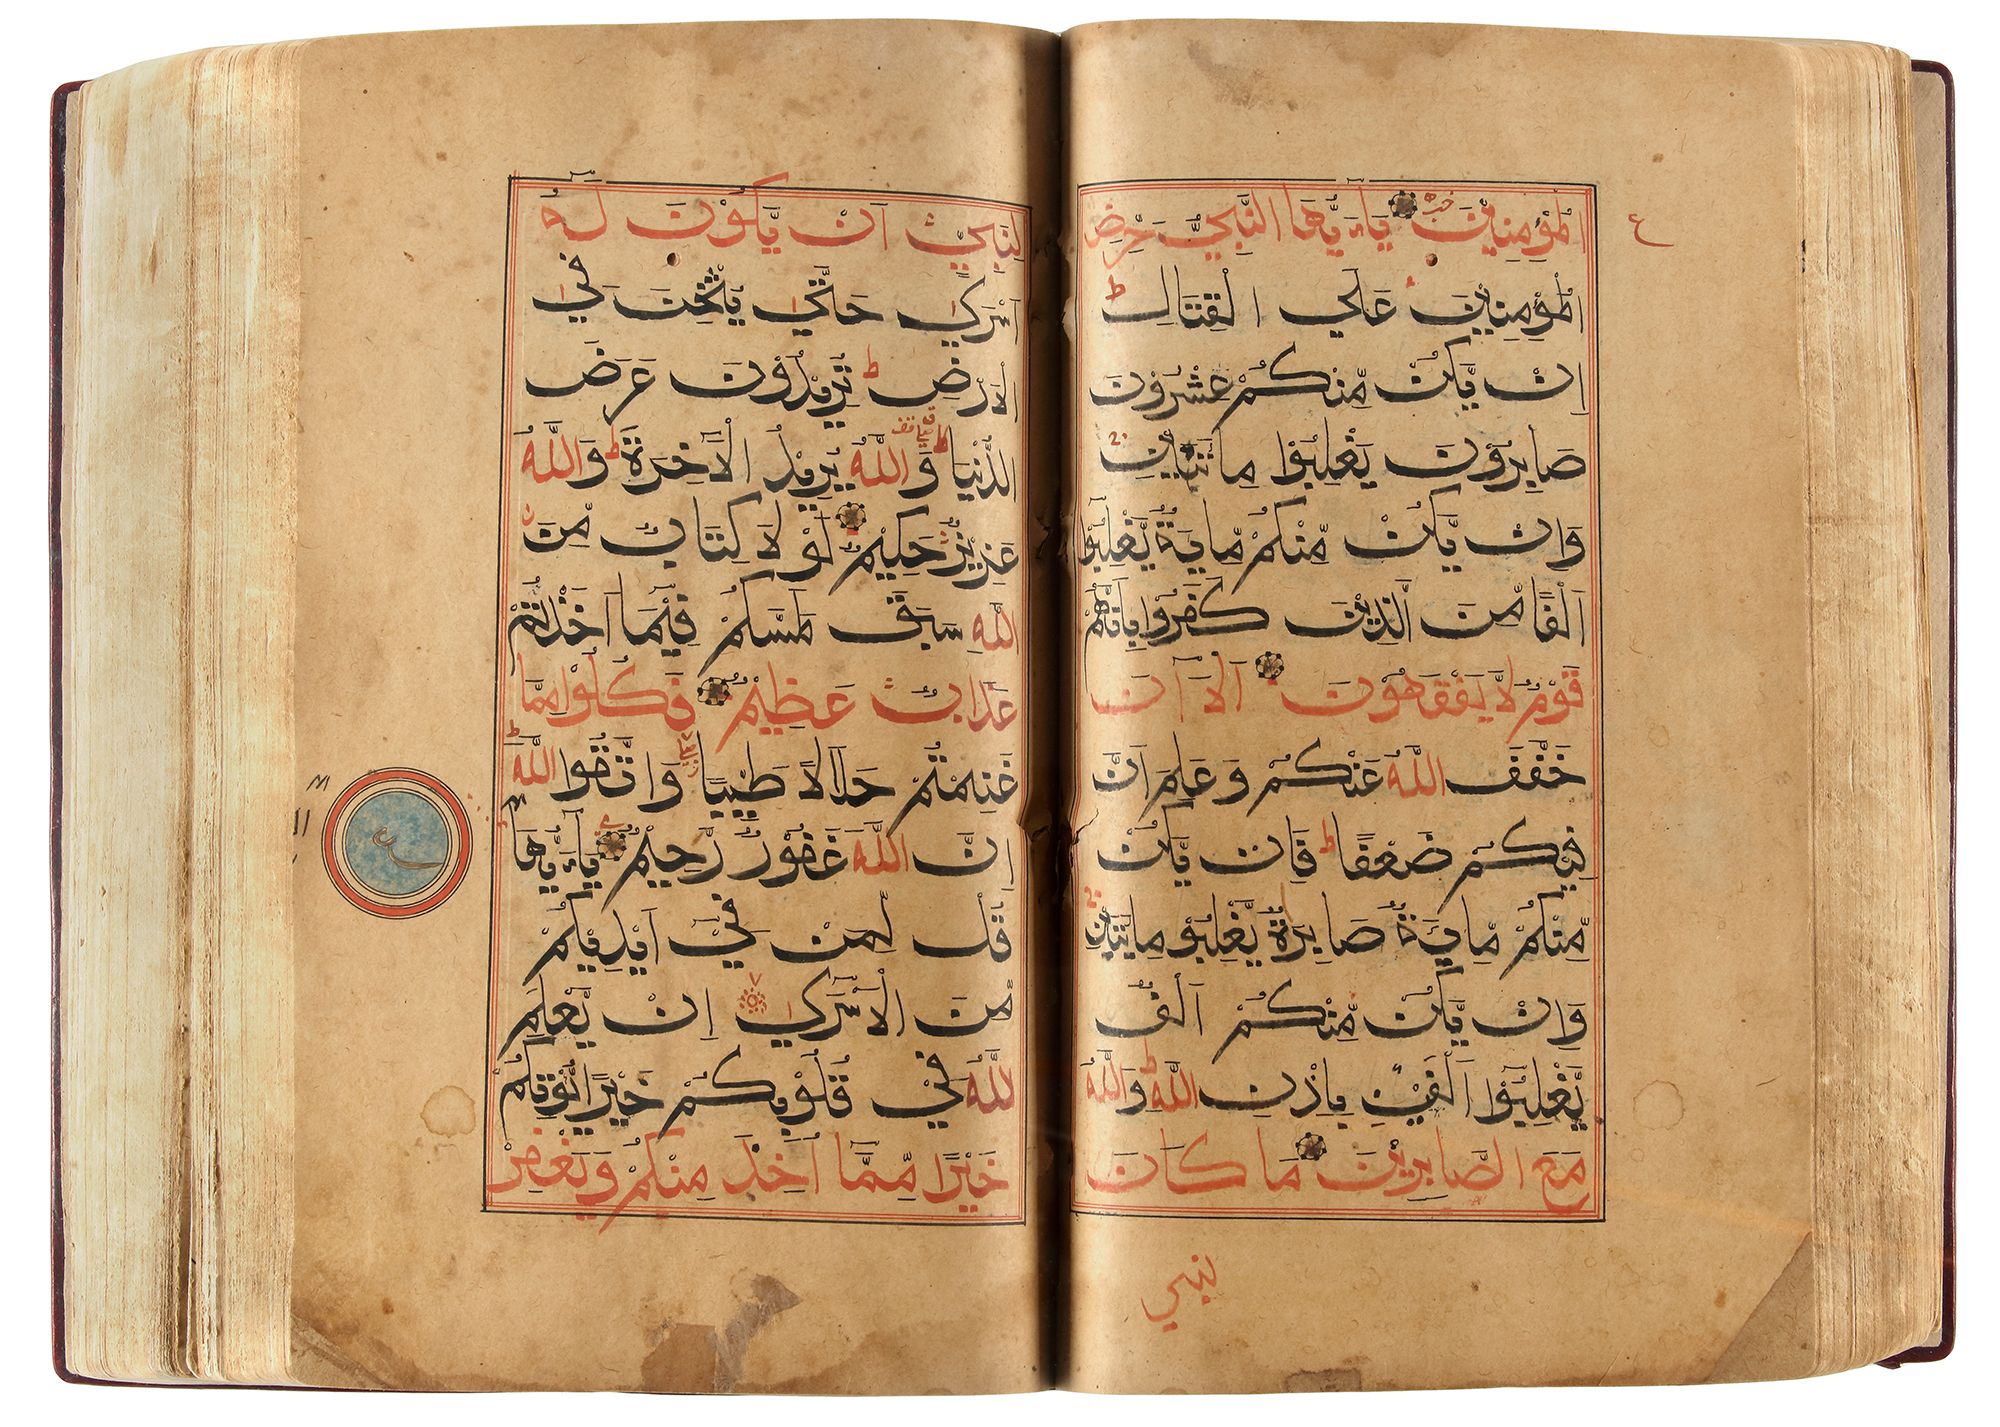 الْمُؤْمِنِيْنَ يَاءَيُّهَا النَّبِيُّ حَرِّضِ
الْمُؤْمِنِيْنَ عَلَي الْقِتَالِ ط
اِنْ يَّكُنْ مِّنْكُمْ عِشْرُوْنَ
صَابِرُوْنَ يَغْلِبُوْا مِائَتَيْنِ
وَاِنْ يَّكُنْ مِّنْكُمْ مِايَةٌ يَّغْلِبُوْا
اَلْفًا مِّنَ الَّذِيْنَ كَفَرُوْا بِاَنَّهُمْ
قَوْمٌ لَّا يَفْقَهُوْنَ اَلْاٰنَ
خَفَّفَ اللّٰهُ عَنْكُمْ وَعَلِمَ اَنَّ
فِيْكُمْ ضَعْفًا ط فَاِنْ يَّكُنْ
مِّنْكُمْ مِايَةٌ صَابِرَةٌ يَّغْلِبُوْا مِايَتَيْنِ
وَاِنْ يَّكُنْ مِّنْكُمْ اَلْفٌ
يَّغْلِبُوْا اَلْفَيْنِ بِاِذْنِ اللّٰهِ ط وَاللّٰهُ
مَعَ الصَّابِرِيْنَ مَا كَانَ
نبي
ع
لِنَبِيٍّ اَنْ يَّكُوْنَ لَهٗ
اَسْرٰي حَتّٰي يُثْخِنَ فِي
الْاَرْضِ ط تُرِيْدُوْنَ عَرَضَ
الدُّنْيَا ط وَاللّٰهُ يُرِيْدُ الْاٰخِرَةَ ط وَاللّٰهُ
عَزِيْزٌ حَكِيْمٌ لَوْ لَا كِتَابٌ مِّنَ
اللّٰهِ سَبَقَ لَمَسَّكُمْ فِيْمَا اَخَذْتُمْ
عَذَابٌ عَظِيْمٌ فَكُلُوْا مِمَّا
غَنِمْتُمْ حَلَالًا طَيِّبًا وَاتَّقُوا اللّٰهَ ط
اِنَّ اللّٰهَ غَفُوْرٌ رَّحِيْمٌ يَاءَيُّهَا
قُلْ لِّمَنْ فِيْ اَيْدِيْكُمْ
مِّنَ الْاَسْرٰي اِنْ يَّعْلَمِ
اللّٰهُ فِيْ قُلُوْبِكُمْ خَيْرًا يُّؤْتِكُمْ
خَيْرًا مِّمَّا اُخِذَ مِنْكُمْ وَيَغْفِرْ